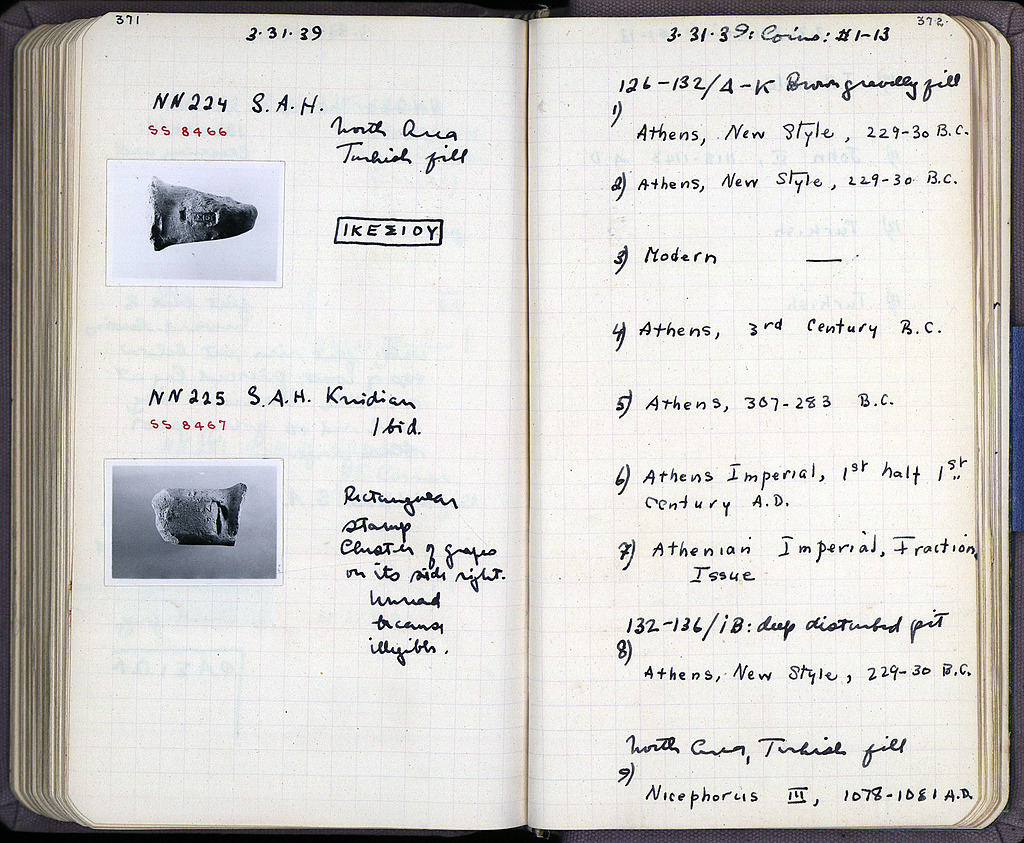 371
3·31·39
NN224 S.A.H.
SS 8466
North Area
Turkish fill
ΙΚΕΣΙΟΥ
NN225 S.A.H. Knidian
SS 8467
Ibid.
Rectangular
stamp
Cluster of grapes
on its side right.
Unread
because
illegible.
372
3·31·39: Coins: #1-13
126-132/Δ-K Brown gravelly fill
1)
Athens, New Style, 229-30 B.C.
2) Athens, New Style, 229-30 B.C.
3) Modern —
4) Athens, 3rd Century B.C.
5) Athens, 307-283 B.C.
6) Athens Imperial, 1st half 1st
Century A.D.
7) Athenian Imperial, Fraction
Issue
132-136/IB: deep disturbed pit
8)
Athens, New Style, 229-30 B.C.
North Area, Turkish fill
9)
Nicephorus III, 1078-1081 A.D.